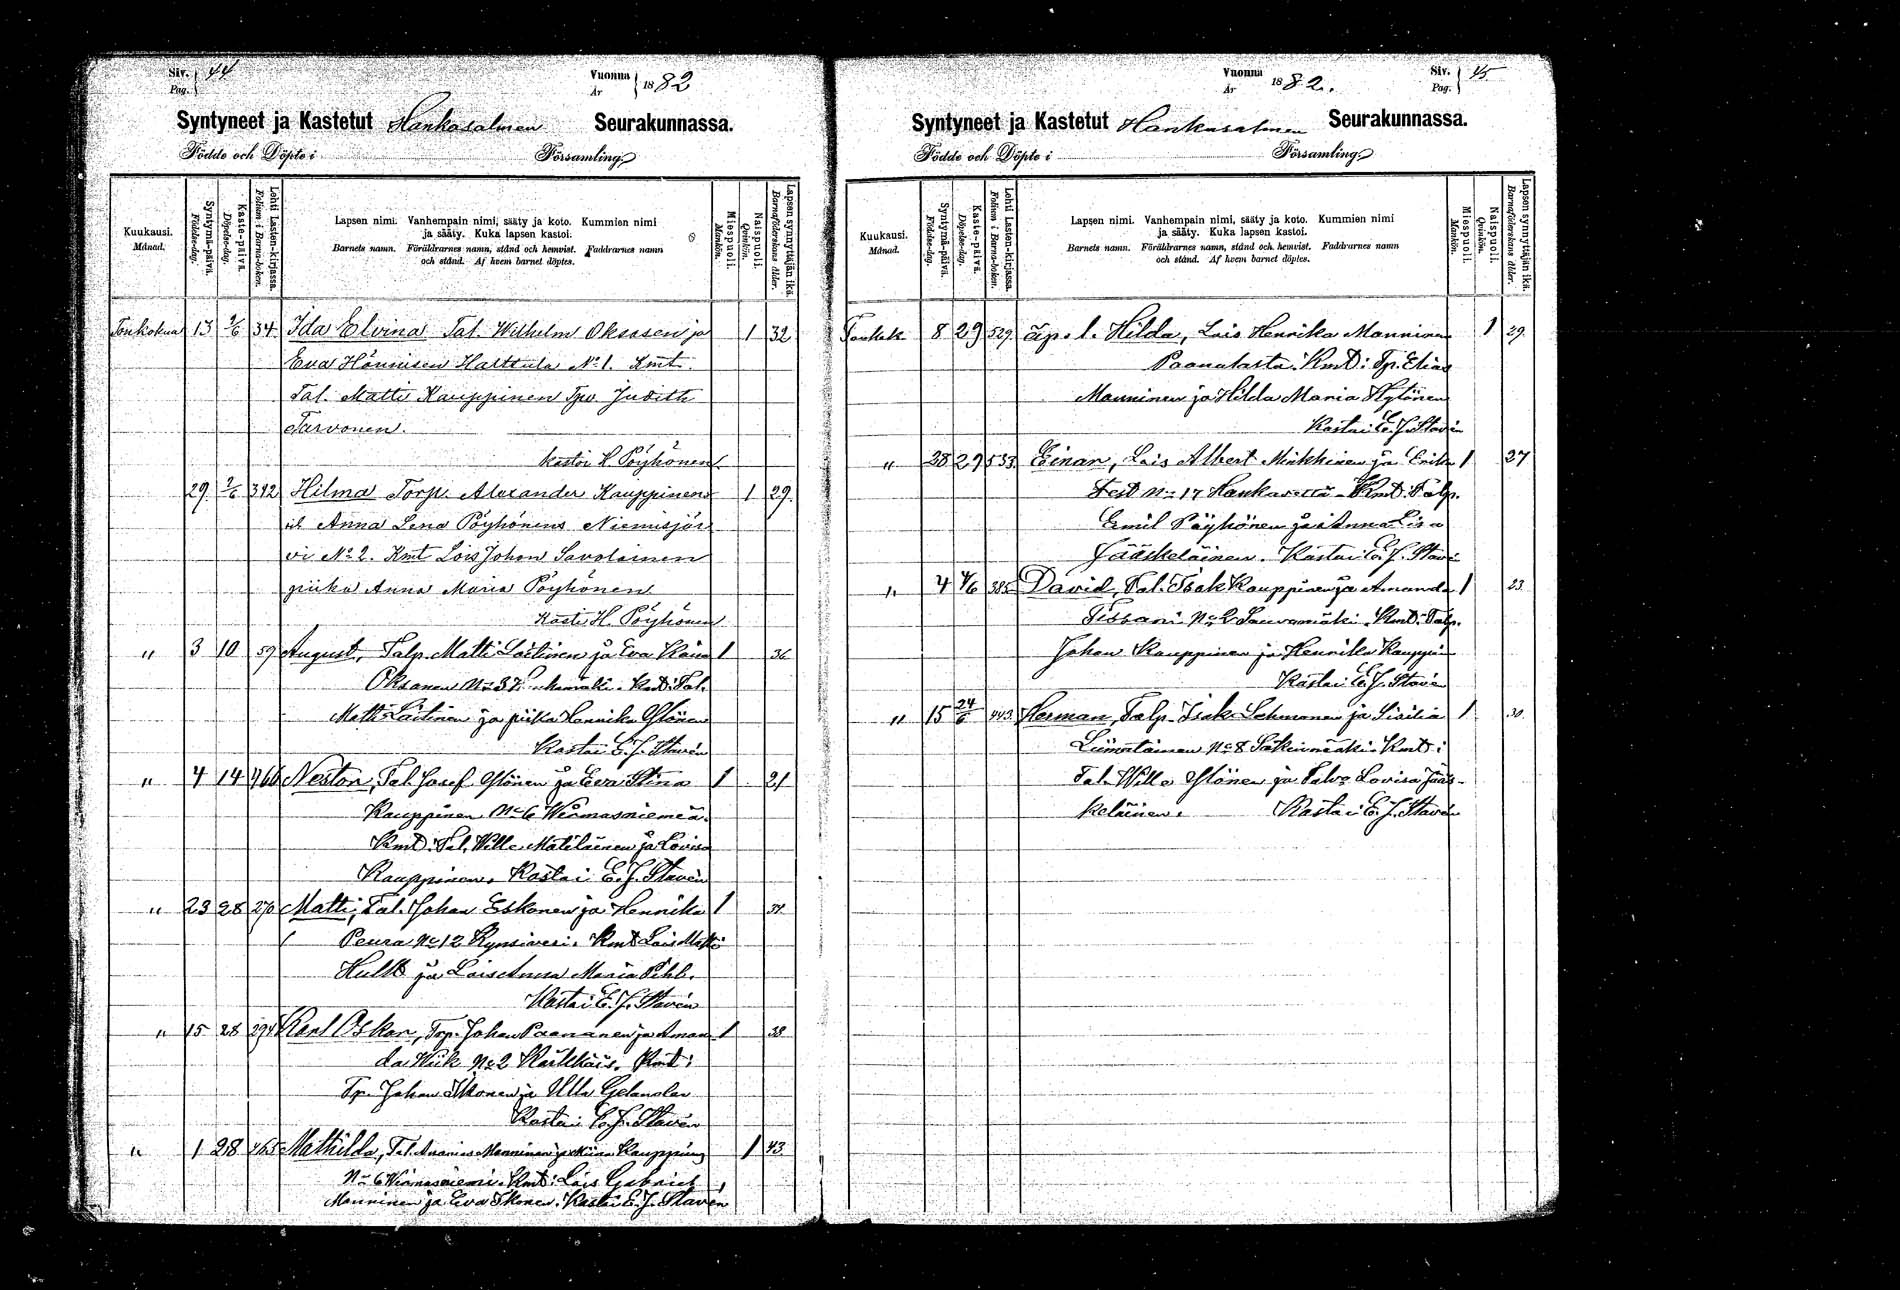 Siv. 44
Pag.
Vuonna 1882
År
Syntyneet ja Kastetut Hankasalmen Seurakunnassa.
Födde och Döpte i Församling
Kuukausi.
Månad.
Syntymä-päivä.
Födelse-dag.
Kaste-päivä.
Döpelse-dag.
Lehti Lasten-kirjassa.
Folium i Barna-boken.
Lapsen nimi. Vanhempain nimi, sääty ja koto. Kummien nimi
ja sääty. Kuka lapsen kastoi.
Barnets namn. Föräldrarnes namn, stånd och hemvist. Faddrarnes namn
och stånd. Af hvem barnet döptes.
Miespuoli.
Mankön.
Naispuoli.
Qvinkön.
Lapsen synnyttäjän ikä.
Barnaföderskans ålder.
Toukokuu 13 2/6 34 Ida Elvina Tal. Wilhelm Oksasen ja 1 32
Eva Hännisen Harttula No 1. Kmt.
Tal. Matti Kauppinen Tpv. Judith
Tarvonen.
kastoi H. Pöyhönen
29 2/6 392 Hilma Torp. Alexander Kauppinens 1 29.
Anna Lena Pöyhönens Niemisjär
vi No 2. Kmt Lois Johan Savolainen
piika Anna Maria Pöyhönen
Kasti H. Pöyhönen
" 3 10 59 August, Talp. Matti Laitinen ja Eva 1 36
Oksanen No 3 Kmt: Tal.
Matti Laitinen ja piika Henrika Ylönen
Kastoi E. J. Stavén
" 4 14 466 Nestor, Tal. Josef Ylönen ja Eva Stina 1 21
Kauppinen No 6 Wärmasniemeä.
Kmt: Tal. Wille Matilainen ja Lovisa
Kauppinen. Kastoi E. J. Stavén
" 23 28 270 Matti, Tal. Johan Eskonen ja Henrika 1 34
Peura No 12 Kynsivesi. Kmt Lois Matti
Hult ja Lois Anna Maria Pihl.
Kastoi E. J. Stavén
" 15 28 294 Karl Oskar, Trp. Johan Paananen ja Aman 1 38
da Wiik No 2 Kärkkäis. Kmt:
Tp. Johan Ikonen ja Ulla Gelander
Kastoi E. J. Stavén
" 1 28 465 Mathilda, Tal. Ananias Manninen ja Miina Kauppinen 1 43
No 6 Wärmasniemi. Kmt: Lois Gabriel
Manninen ja Eva Ikonen. Kastoi E. J. Stavén
Siv. 45
Pag.
Vuonna 1882.
År
Syntyneet ja Kastetut Hankasalmen Seurakunnassa.
Födde och Döpte i Församling
Kuukausi.
Månad.
Syntymä-päivä.
Födelse-dag.
Kaste-päivä.
Döpelse-dag.
Lehti Lasten-kirjassa.
Folium i Barna-boken.
Lapsen nimi. Vanhempain nimi, sääty ja koto. Kummien nimi
ja sääty. Kuka lapsen kastoi.
Barnets namn. Föräldrarnes namn, stånd och hemvist. Faddrarnes namn
och stånd. Af hvem barnet döptes.
Miespuoli.
Mankön.
Naispuoli.
Qvinkön.
Lapsen synnyttäjän ikä.
Barnaföderskans ålder.
Toukok 8 29 529 äp. l. Hilda, Lois Henrika Manninen 1 29
Kmt: Tp. Elias
Manninen ja Hilda Maria Hytönen
Kastoi E. J. Stavén
" 28 29 533 Einar, Lois Albert Minkkinen ja Erika 1 27
No 17 Hankavettä. Kmt: Talp.
Emil Pöyhönen ja Anna Lisa
Jääskeläinen. Kastoi E. J. Stavé
" 4 4/6 385 David, Tal. Isak Kauppinen ja Amanda 1 23
Tissari No 2 Sauvamäki. Kmt: Talp.
Johan Kauppinen ja Henrika Kauppin
Kastoi E. J. Stavén
" 15 24/6 443 Herman, Talp. Isak Lehmonen ja Sisilia 1 30
Liimatainen No 8 Säkinmäki. Kmt:
Tal. Wille Ylönen ja Talv. Lovisa Jääs-
keläinen. Kastoi E. J. Stavén